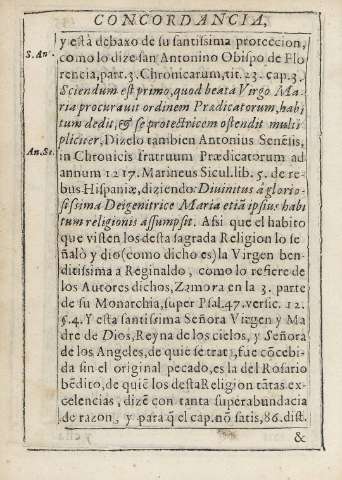 CONCORDANCIA,
y està debaxo de su santissima proteccion,
S. An.
como lo dize san Antonino Obispo de Flo
rencia, part. 3. Chronicarum, tit. 23. cap. 3.
Sciendum est primo, quod beata Virgo Ma
ria procurauit ordinem Prædicatorum, habi
tum dedit, & se protectricem ostendit multi
pliciter, Dizelo tambien Antonius Senẽsis,
An. Se.
in Chronicis fratruum Prædicatorum ad
annum 1217. Marineus Sicul. lib. 5. de re-
bus Hispaniæ, diziendo: Diuinitus á glorio-
sissima Deigenitrice Maria etiã ipsius habi
tum religionis assumpsit. Assi que el habito
que visten los desta sagrada Religion lo se
ñalò y dio (como dicho es) la Virgen ben
ditissima a Reginaldo, como lo refiere de
los Autores dichos, Zamora en la 3. parte
de su Monarchia, super Psal. 47. versic. 12.
§. 4. Y esta santissima Señora Virgen y Ma
dre de Dios, Reyna de los cielos, y Señora
de los Angeles, de quie se trat, fue cõcebi-
da sin el original pecado, es la del Rosario
bẽdito, de quiẽ los desta Religion tãtas ex-
celencias, dizẽ con tanta superabundacia
de razon, y para q̃ el cap. nõ satis, 86. dist.
&